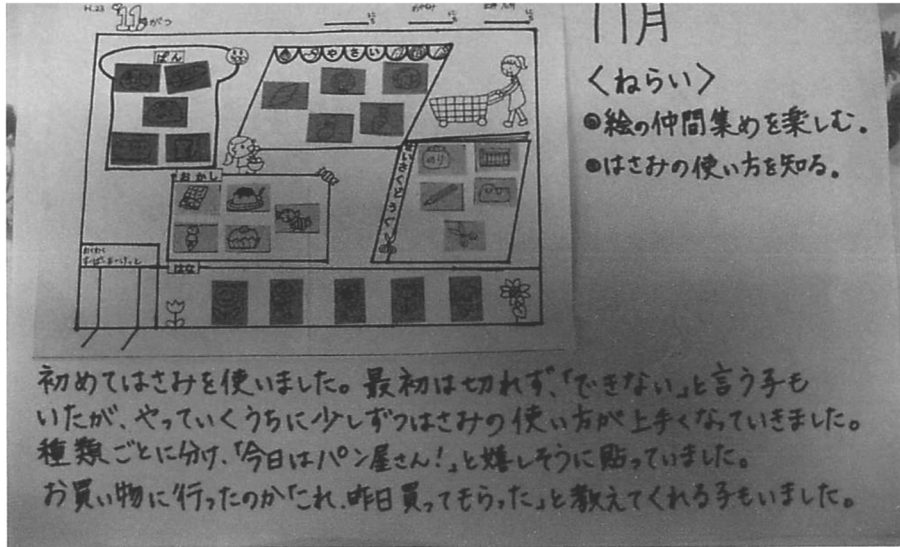 H.23
11がつ
ぱん
やさい
おかし
せいさくどうぐ
のり
わくわく
すーぱーまーけっと
はな
11月
〈ねらい〉
●絵の仲間集めを楽しむ。
●はさみの使い方を知る。
初めてはさみを使いました。最初は切れず、「できない」と言う子も
いたが、やっていくうちに少しずつはさみの使い方が上手くなっていきました。
種類ごとに分け、「今日はパン屋さん!」と嬉しそうに貼っていました。
お買い物に行ったのか「これ、昨日買ってもらった」と教えてくれる子もいました。